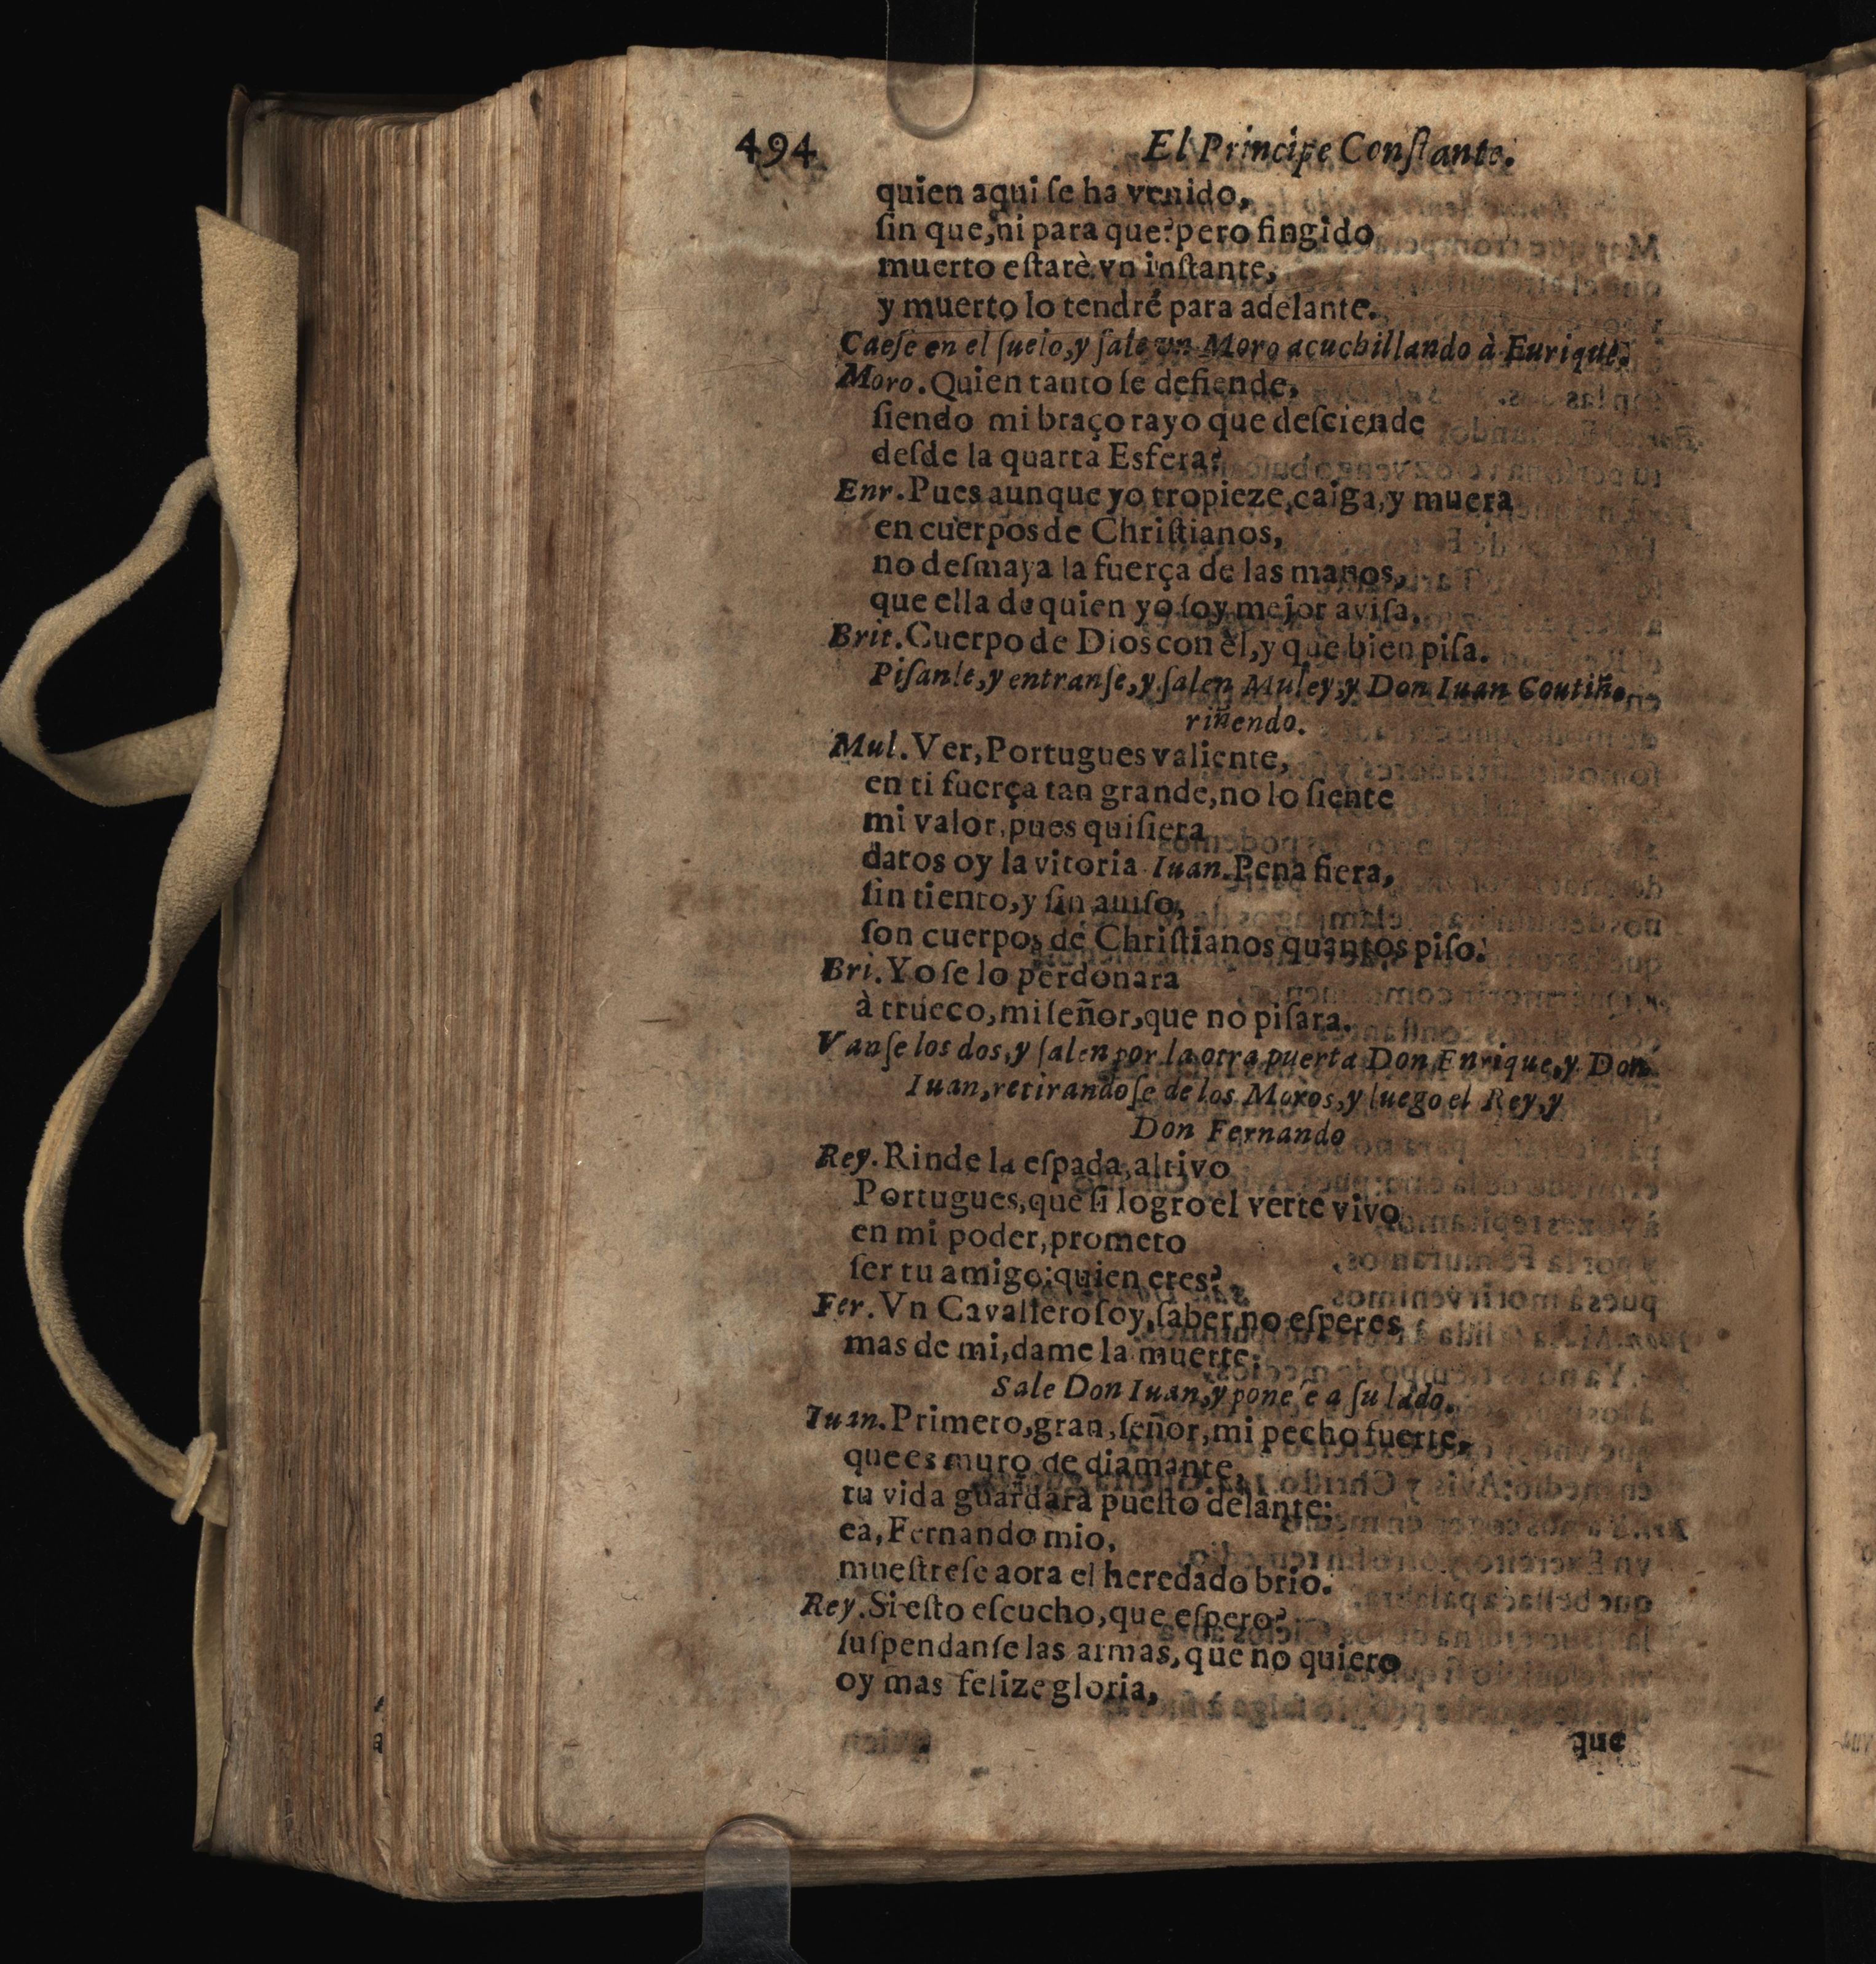 494 El Principe Conſtante.
quien aqui ſe ha venido,
ſin que, ni para que? pero fingido
muerto eſtarè vn inſtante,
y muerto lo tendrè para adelante.
Caeſe en el ſuelo, y ſale vn Moro acuchillando à Enrique.
Moro. Quien tanto ſe defiende,
ſiendo mi braço rayo que deſciende
deſde la quarta Esfera?
Enr. Pues aunque yo tropieze, caiga, y muera
en cuerpos de Chriſtianos,
no deſmaya la fuerça de las manos,
que ella de quien yo ſoy mejor aviſa.
Brit. Cuerpo de Dios con èl, y que bien piſa.
Piſanle, y entranſe, y ſalen Muley, y Don Iuan Coutiño
riñendo.
Mul. Ver, Portugues valiente,
en ti fuerça tan grande, no lo ſiente
mi valor, pues quiſiera
daros oy la vitoria Iuan. Pena fiera,
ſin tiento, y ſin auiſo,
ſon cuerpos de Chriſtianos quantos piſo.
Bri. Yo ſe lo perdonara
à trueco, mi ſeñor, que no piſara.
Vanſe los dos, y ſalen por la otra puerta Don Enrique, y Don
Iuan, retirandoſe de los Moros, y luego el Rey, y
Don Fernando
Rey. Rinde la eſpada, altivo
Portugues, que ſi logro el verte vivo
en mi poder, prometo
ſer tu amigo; quien eres?
Fer. Vn Cavallero ſoy, ſaber no eſperes
mas de mi, dame la muerte.
Sale Don Iuan, y pone ſe a ſu lado.
Iuan. Primero, gran ſeñor, mi pecho fuerte,
que es muro de diamante,
tu vida guardarà pueſto delante:
ea, Fernando mio,
mueſtreſe aora el heredado brio.
Rey. Si eſto eſcucho, que eſpero?
ſuſpendanſe las armas, que no quiero
oy mas felize gloria,
que